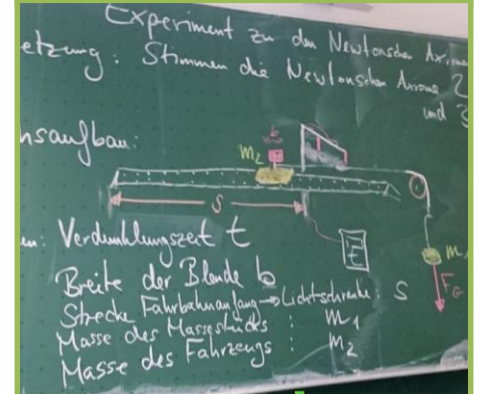 Experiment zu den Newtonschen Axiome
etzung: Stimmen die Newtonschen Axiome 2
und 3
nsaufbau:
m2
S
t
m
FG
en: Verdunklungszeit t
Breite der Blende b
Strecke Fahrbahnanfang → Lichtschranke: S
Masse des Massestücks : m1
Masse des Fahrzeugs : m2